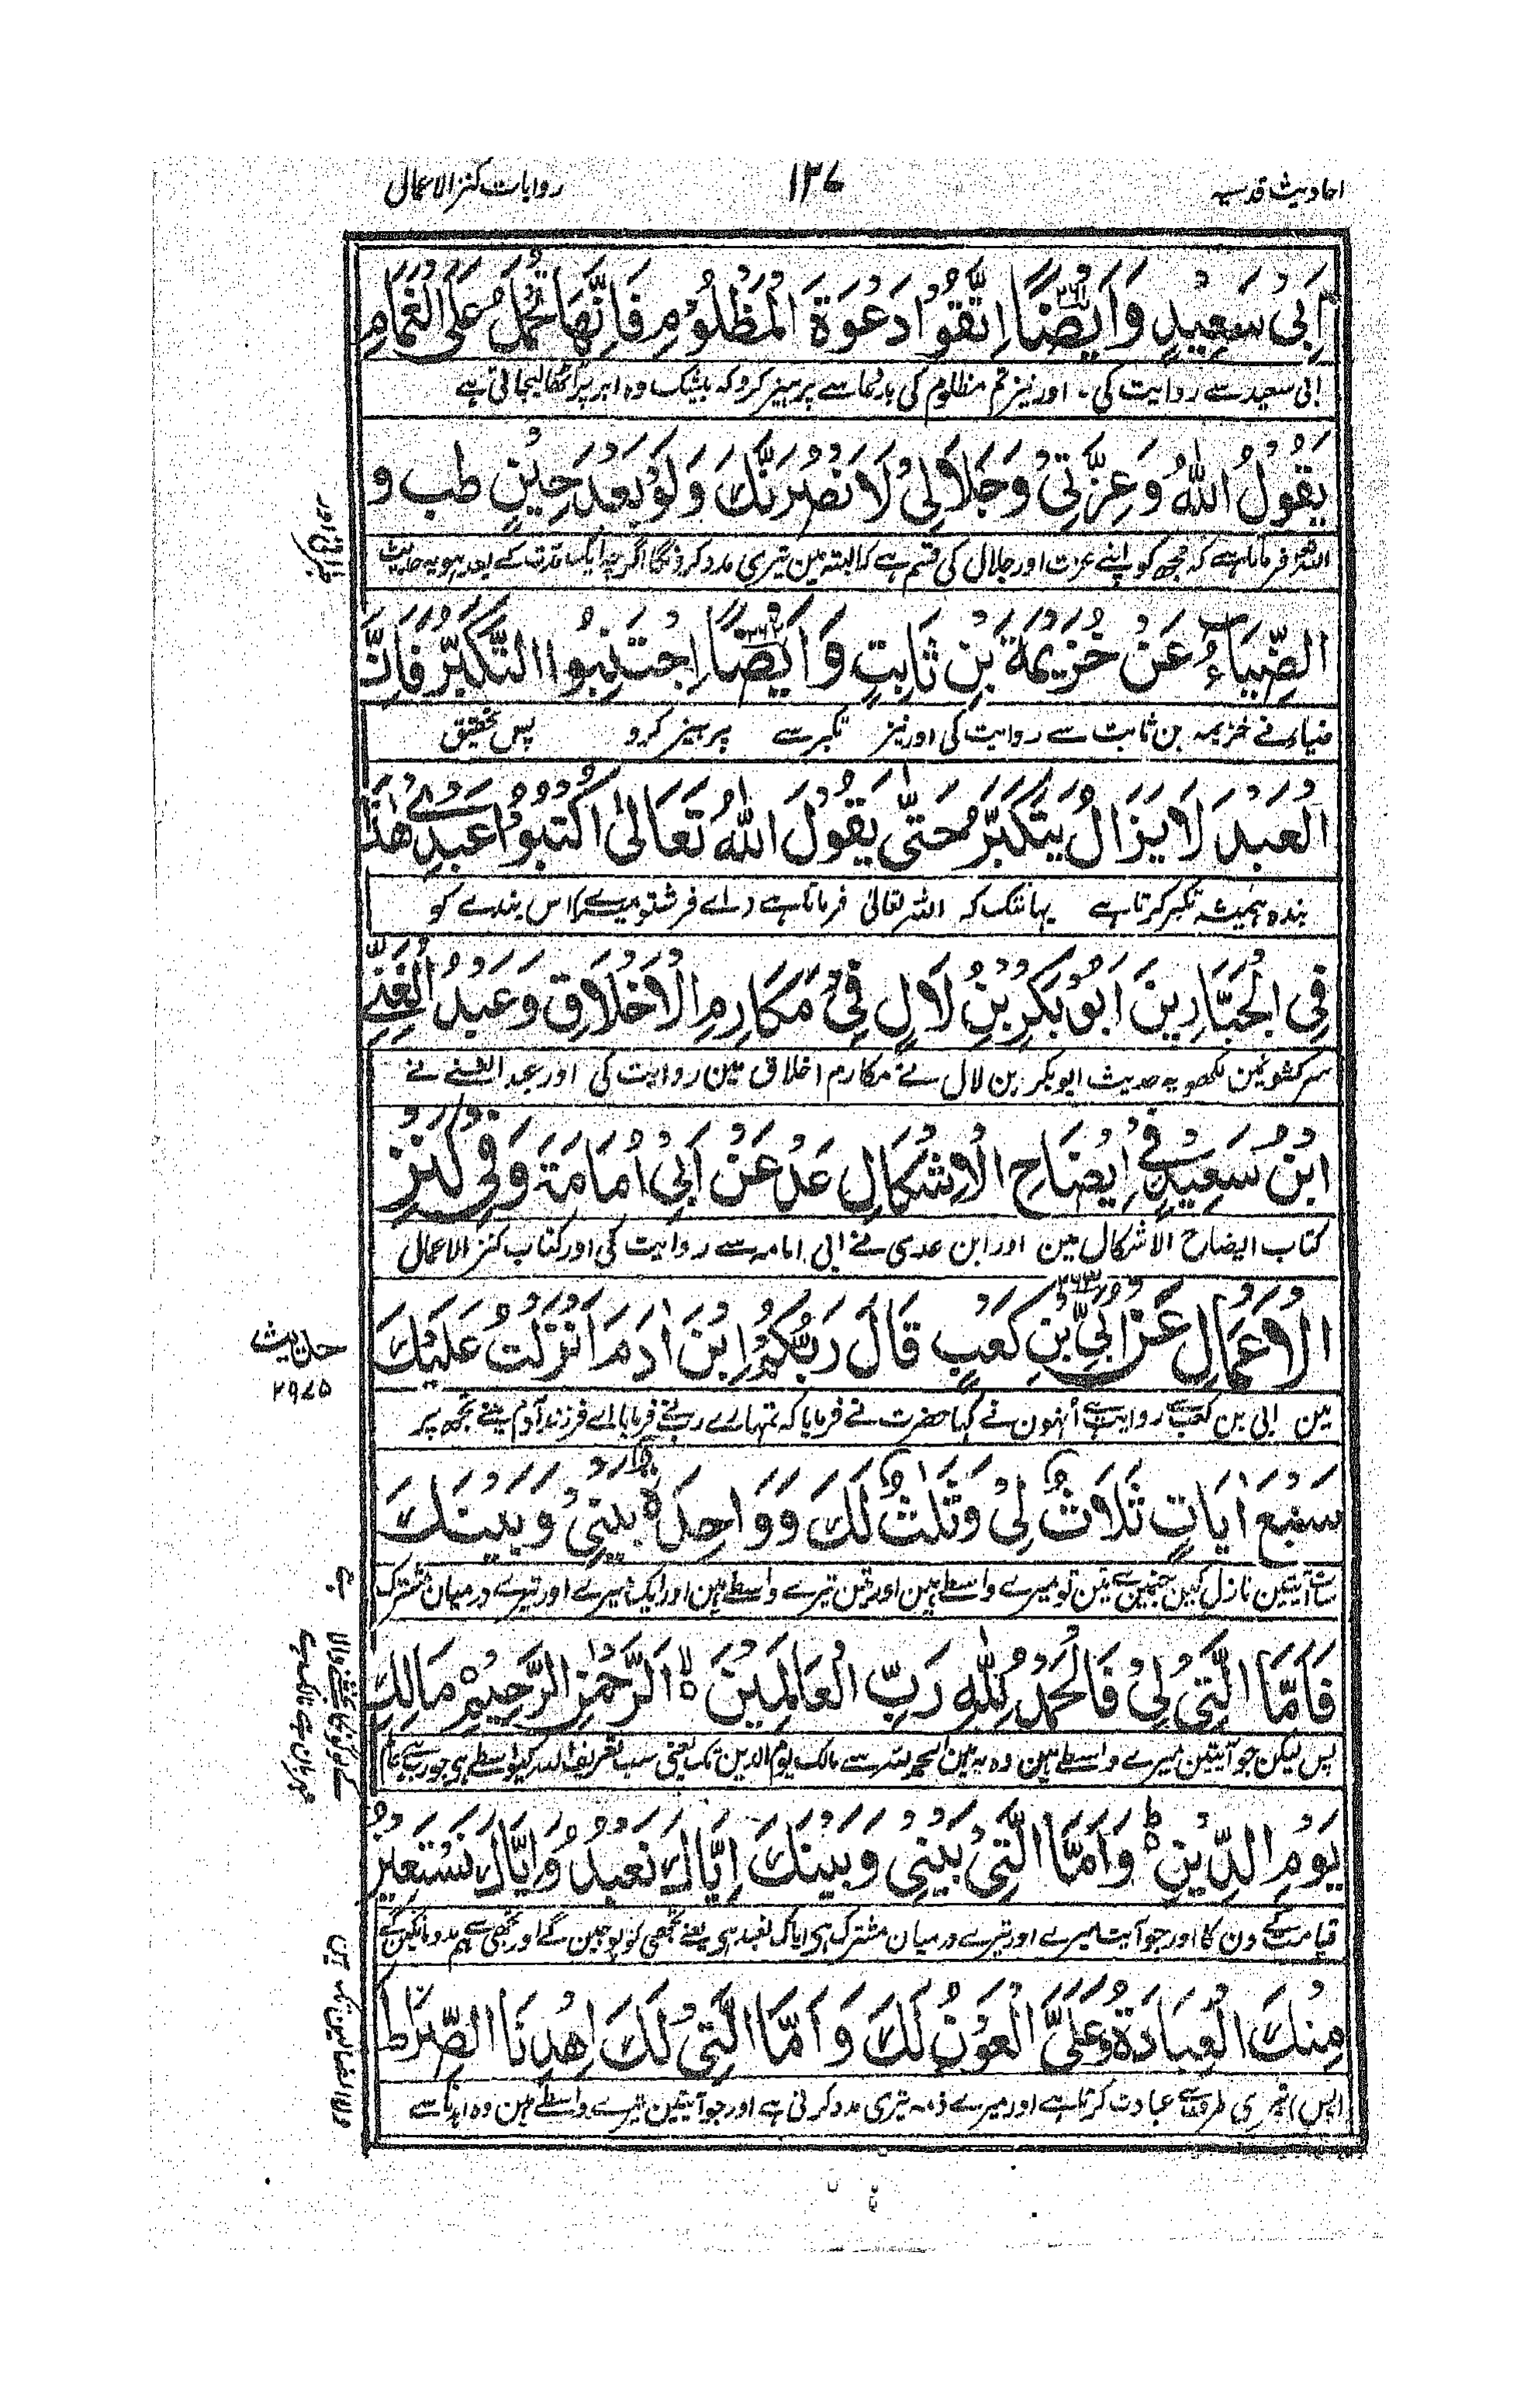 احادیث قدسیہ
۱۳۷
روایات کنز الاعمال
اَبِیْ سَعِیْدٍ وَاَیْضًا اِتَّقُوْا دَعْوَةَ الْمَظْلُوْمِ فَاِنَّهَا تُحْمَلُ عَلَی الْغَمَامِ
ابی سعید سے روایت کی۔ اور نیز تم مظلوم کی بددعا سے پرہیز کرو کہ بیشک وہ ابر پر اٹھالیجاتی ہے
یَقُوْلُ اللّٰهُ وَعِزَّتِیْ وَجَلَالِیْ لَاَنْصُرَنَّكَ وَلَوْ بَعْدَ حِیْنٍ طب و
اللہ فرماتا ہے کہ مجھ کو اپنے عزت اور جلال کی قسم ہے کہ البتہ مین تیری مدد کرونگا اگرچہ ایک مدت کے بعد ہو یہ حدیث
طبرانی اور
الضِّیَاءُ عَنْ خُزَیْمَةَ بْنِ ثَابِتٍ وَاَیْضًا اِجْتَنِبُوا التَّکَبُّرَ فَاِنَّ
ضیاء نے خزیمہ بن ثابت سے روایت کی اور نیز تکبر سے پرہیز کرو پس تحقیق
الْعَبْدَ لَا یَزَالُ یَتَکَبَّرُ حَتّٰی یَقُوْلَ اللّٰهُ تَعَالٰی اُکْتُبُوْا عَبْدِیْ هٰذَا
بندہ ہمیشہ تکبر کرتا ہے یہانتک کہ اللہ تعالیٰ فرماتا ہے (اے فرشتو میرے) اس بندے کو
فِی الْجَبَّارِیْنَ اَبُوْ بَکْرِ بْنُ لَالٍ فِیْ مَکَارِمِ الْاَخْلَاقِ وَعَبْدُ الْغَنِیِّ
سرکشونمین لکھو یہ حدیث ابوبکر بن لال نے مکارم اخلاق مین روایت کی اور عبد الغنے نے
ابْنُ سَعِیْدٍ فِیْ اِیْضَاحِ الْاِشْکَالِ عَدْ عَنْ اَبِیْ اُمَامَةَ وَفِیْ کَنْزِ
کتاب ایضاح الاشکال مین اور ابن عدی نے ابی امامہ سے روایت کی اور کتاب کنز الاعمال
الْاَعْمَالِ عَنْ اُبَیِّ بْنِ کَعْبٍ قَالَ رَبُّکُمْ اِبْنَ اٰدَمَ اَنْزَلْتُ عَلَیْكَ
حدیث
۲۹۷۵
مین ابی بن کعب سے روایت ہے انہون نے کہا حضرت نے فرمایا کہ تمہارے رب نے فرمایا اے فرزند آدم مینے تجھ پر
سَبْعَ اٰیَاتٍ ثَلَاثٌ لِیْ وَثَلٰثٌ لَكَ وَوَاحِدَةٌ بَیْنِیْ وَبَیْنَكَ
سات آیتین نازل کین جنمین سے تین تو میرے واسطے ہین اور تین تیرے واسطے ہین اور ایک میرے اور تیرے درمیان مشترک
ہے
فَاَمَّا الَّتِیْ لِیْ فَالْحَمْدُ لِلّٰهِ رَبِّ الْعَالَمِیْنَ ہ اَلرَّحْمٰنِ الرَّحِیْمِ مَالِكِ
پس لیکن جو آیتین میرے واسطے ہین وہ یہ ہین الحمد للہ سے مالک یوم الدین تک یعنی سب تعریف اللہ کیواسطے ہی جو رب ہے
یَوْمِ الدِّیْنِ ط وَاَمَّا الَّتِیْ بَیْنِیْ وَبَیْنَكَ اِیَّاكَ نَعْبُدُ وَاِیَّاكَ نَسْتَعِیْنُ
قیامت کے دن کا اور جو آیت میرے اور تیرے درمیان مشترک ہی ایاک نعبد ہی یعنے تجھی کو پوجین گے اور تجھی سے ہم مدد مانگین گے
مِنْكَ الْعِبَادَةُ وَعَلَیَّ الْعَوْنُ لَكَ وَاَمَّا الَّتِیْ لَكَ اِهْدِنَا الصِّرَاطَ
(پس) تیری طرف سے عبادت کرنا ہے اور میرے ذمہ تیری مدد کرنی ہے اور جو آیتین تیرے واسطے ہین وہ اہدنا سے